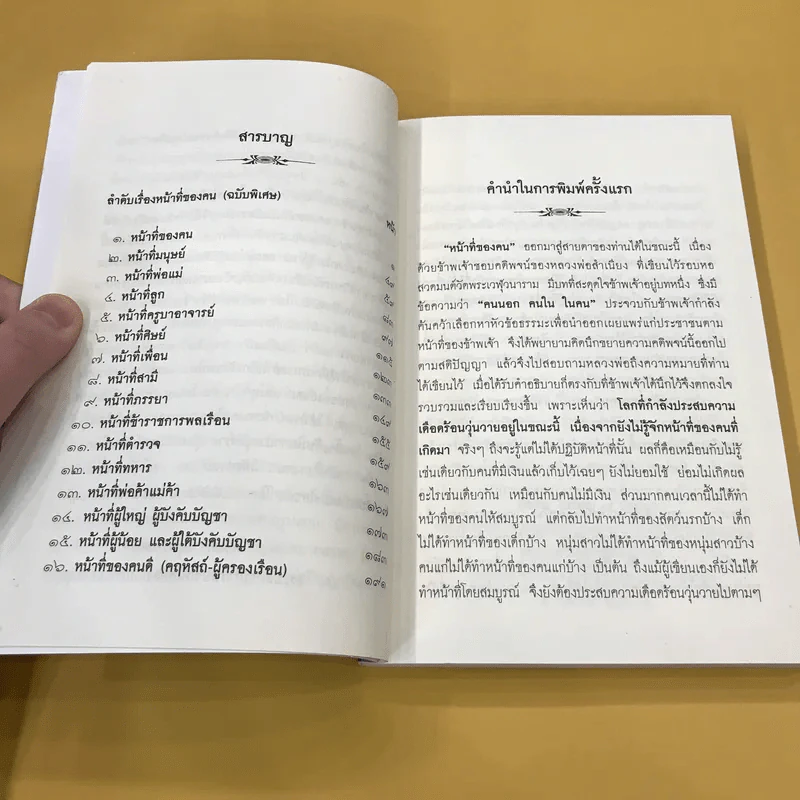 สารบาญ
ลำดับเรื่องหน้าที่ของคน (ฉบับพิเศษ)
หน้า
๑. หน้าที่ของคน ๑
๒. หน้าที่มนุษย์
๓. หน้าที่พ่อแม่
๔. หน้าที่ลูก
๕. หน้าที่ครูบาอาจารย์
๖. หน้าที่ศิษย์ ๙๗
๗. หน้าที่เพื่อน ๑๑๕
๘. หน้าที่สามี ๑๒๓
๙. หน้าที่ภรรยา ๑๓๓
๑๐. หน้าที่ข้าราชการพลเรือน ๑๔๗
๑๑. หน้าที่ตำรวจ ๑๕๕
๑๒. หน้าที่ทหาร ๑๕๙
๑๓. หน้าที่พ่อค้าแม่ค้า ๑๖๓
๑๔. หน้าที่ผู้ใหญ่ ผู้บังคับบัญชา ๑๖๗
๑๕. หน้าที่ผู้น้อย และผู้ใต้บังคับบัญชา ๑๗๓
๑๖. หน้าที่ของคนดี (คฤหัสถ์-ผู้ครองเรือน) ๑๘๓
๑๙๑
คำนำในการพิมพ์ครั้งแรก
“หน้าที่ของคน” ออกมาสู่สายตาของท่านได้ในขณะนี้ เนื่อง
ด้วยข้าพเจ้าชอบคติพจน์ของหลวงพ่อสำเนียง ที่เขียนไว้รอบหอ
สวดมนต์วัดพระเวฬุวนาราม มีบทที่สะดุดใจข้าพเจ้าอยู่บทหนึ่ง ซึ่งมี
ข้อความว่า “คนนอก คนใน ในคน” ประจวบกับข้าพเจ้ากำลัง
ค้นคว้าเลือกหาหัวข้อธรรมะเพื่อนำออกเผยแพร่แก่ประชาชนตาม
หน้าที่ของข้าพเจ้า จึงได้พยายามคิดนึกขยายความคติพจน์นี้ออกไป
ตามสติปัญญา แล้วจึงไปสอบถามหลวงพ่อถึงความหมายที่ท่าน
ได้เขียนไว้ เมื่อได้รับคำอธิบายก็ตรงกับที่ข้าพเจ้าได้นึกไว้จึงตกลงใจ
รวบรวมและเรียบเรียงขึ้น เพราะเห็นว่า โลกที่กำลังประสบความ
เดือดร้อนวุ่นวายอยู่ในขณะนี้ เนื่องจากยังไม่รู้จักหน้าที่ของคนที่
เกิดมา จริงๆ ถึงจะรู้แต่ไม่ได้ปฏิบัติหน้าที่นั้น ผลก็คือเหมือนกับไม่รู้
เช่นเดียวกับคนที่มีเงินแล้วเก็บไว้เฉยๆ ยังไม่ยอมใช้ ย่อมไม่เกิดผล
อะไรเช่นเดียวกัน เหมือนกับคนไม่มีเงิน ส่วนมากคนเวลานี้ไม่ได้ทำ
หน้าที่ของคนให้สมบูรณ์ แต่กลับไปทำหน้าที่ของสัตว์นรกบ้าง เด็ก
ไม่ได้ทำหน้าที่ของเด็กบ้าง หนุ่มสาวไม่ได้ทำหน้าที่ของหนุ่มสาวบ้าง
คนแก่ไม่ได้ทำหน้าที่ของคนแก่บ้าง เป็นต้น ถึงแม้ผู้เขียนเองก็ยังไม่ได้
ทำหน้าที่โดยสมบูรณ์ จึงยังต้องประสบความเดือดร้อนวุ่นวายไปตามๆ